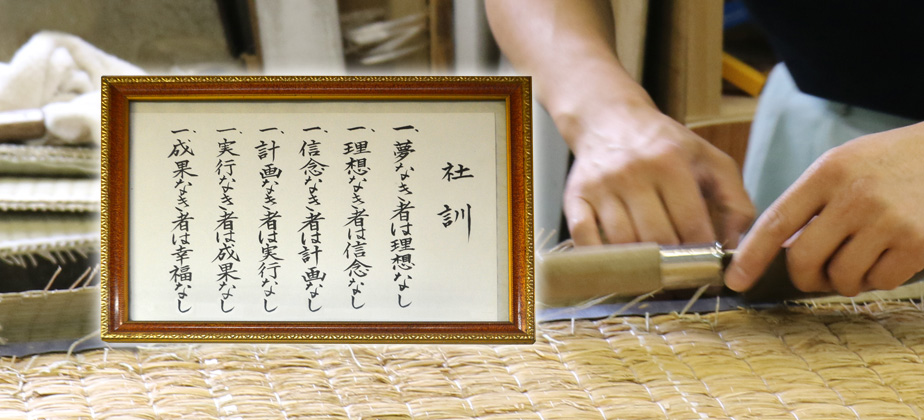 社訓
一、夢なき者は理想なし
一、理想なき者は信念なし
一、信念なき者は計画なし
一、計画なき者は実行なし
一、実行なき者は成果なし
一、成果なき者は幸福なし